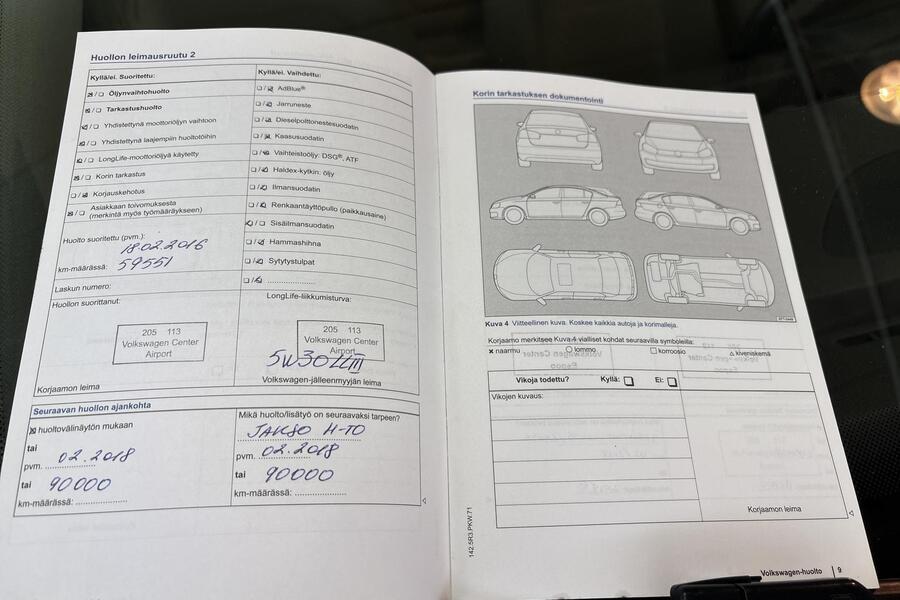 Huollon leimausruutu 2
Kyllä/ei. Suoritettu:
Öljynvaihtohuolto
Tarkastushuolto
Yhdistettynä moottoriöljyn vaihtoon
Yhdistettynä laajempiin huoltotöihin
LongLife-moottoriöljyä käytetty
Korin tarkastus
Korjauskehotus
Asiakkaan toivomuksesta
(merkintä myös työmääräykseen)
Kyllä/ei. Vaihdettu:
AdBlue®
Jarruneste
Dieselpolttonestesuodatin
Kaasusuodatin
Vaihteistoöljy: DSG®, ATF
Haldex-kytkin: öljy
Ilmansuodatin
Renkaantäyttöpullo (paikkausaine)
Sisäilmansuodatin
Hammashihna
Sytytystulpat
Huolto suoritettu (pvm.):
18.02.2016
km-määrässä: 59551
Laskun numero:
Huollon suorittanut:
205 113
Volkswagen Center
Airport
Korjaamon leima
LongLife-liikkumisturva:
205 113
Volkswagen Center
Airport
5W30 LLIII
Volkswagen-jälleenmyyjän leima
Seuraavan huollon ajankohta
huoltovälinäytön mukaan
tai
pvm. 02.2018
tai 90000
km-määrässä:
Mikä huolto/lisätyö on seuraavaksi tarpeen?
JAKSO H-TO
pvm. 02.2018
tai 90000
km-määrässä:
Korin tarkastuksen dokumentointi
Kuva 4 Viitteellinen kuva. Koskee kaikkia autoja ja korimalleja.
Korjaamo merkitsee Kuva 4 vialliset kohdat seuraavilla symboleilla:
x naarmu O lommo □ korroosio △ kiveniskemä
Vikoja todettu? Kyllä: Ei:
Vikojen kuvaus:
Korjaamon leima
142.5R3.PKW.71
Volkswagen-huolto 9